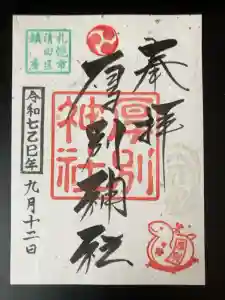 奉拝
札幌市
清田区
鎮座
厚別神社
厚別
神社
令和七乙巳年
九月十二日